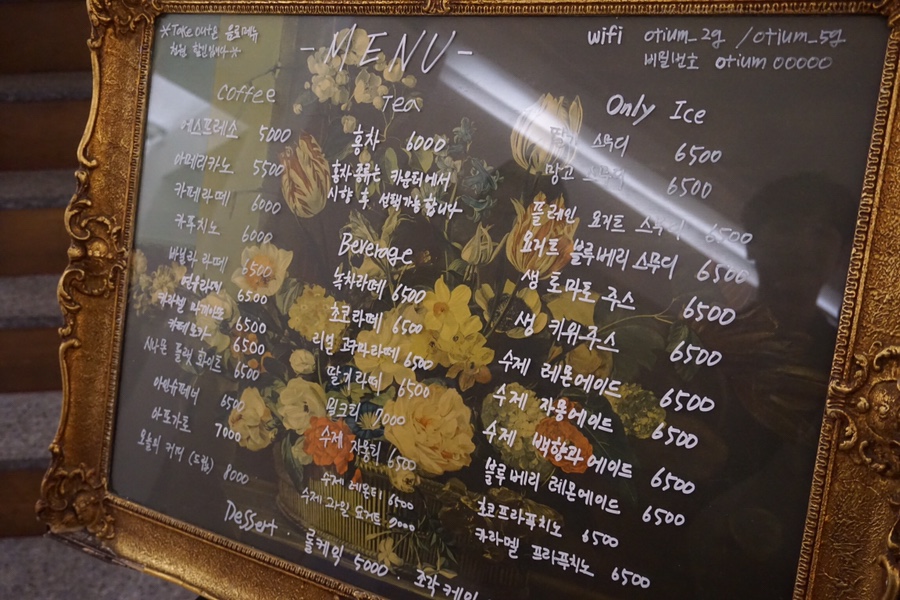 *Take out은 음료메뉴
천원 할인됩니다*
-MENU-
wifi otium_2g / otium_5g
비밀번호 otium 00000
coffee
에스프레소 5000
아메리카노 5500
카페라떼 6000
카푸치노 6000
바닐라 라떼 6500
연유라떼 6500
카라멜 마끼아또 6500
카페모카 6500
시나몬 플랫 화이트 6500
아인슈페너 6500
아포가토 7000
오늘의 커피 (드립) 8000
Tea
홍차 6000
홍차 종류는 카운터에서
시향 후 선택가능합니다
Beverage
녹차라떼 6500
초코라떼 6500
리얼 고구마라떼 6500
딸기라떼 6500
밀크티 7000
수제 자몽티 6500
수제 레몬티 6500
수제 과일 요거트 7000
Only Ice
스무디 6500
망고 스무디 6500
플레인 요거트 스무디 6500
요거트 블루베리 스무디 6500
생 토마토 주스 6500
생 키위주스 6500
수제 레몬에이드 6500
수제 자몽에이드 6500
수제 백향과 에이드 6500
블루베리 레몬에이드 6500
초코 프라푸치노 6500
카라멜 프라푸치노 6500
Dessert
롤케익 5000 · 조각케익